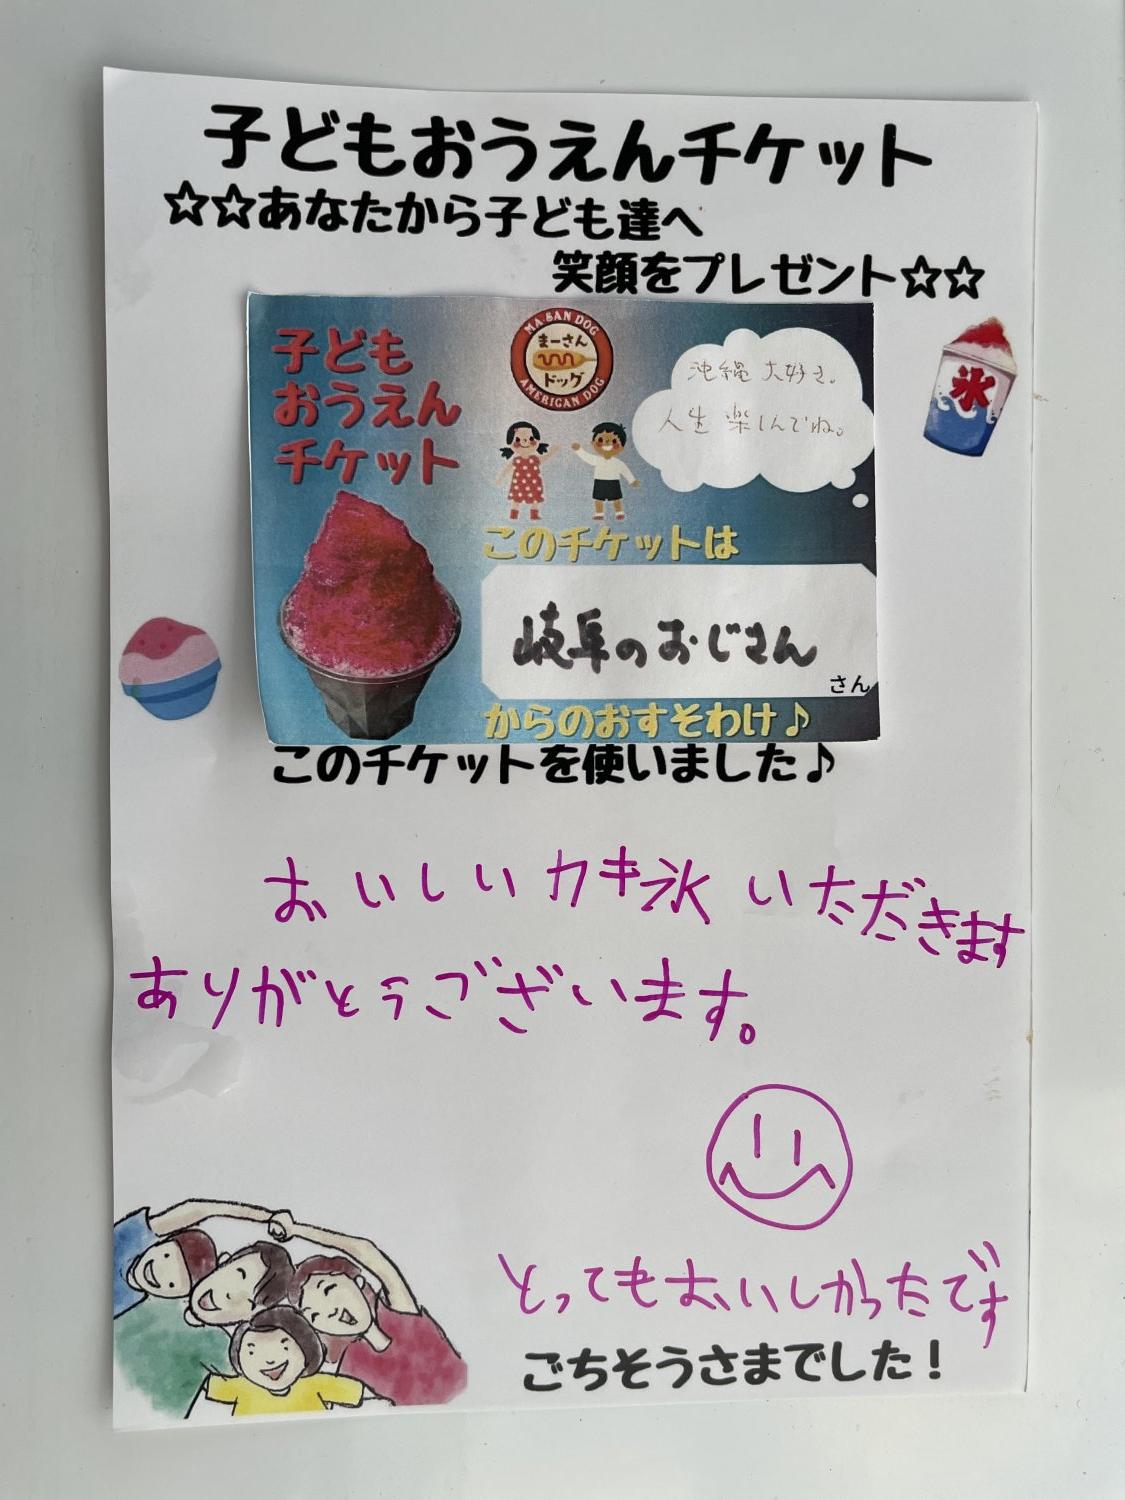 子どもおうえんチケット
☆☆あなたから子ども達へ
笑顔をプレゼント☆☆
子ども
おうえん
チケット
MA SAN DOG
まーさん
ドッグ
AMERICAN DOG
沖縄 大好き。
人生 楽しんでね。
氷
このチケットは
岐阜のおじさん
さん
からのおすそわけ♪
このチケットを使いました♪
おいしいカキ氷 いただきます
ありがとうございます。
とってもおいしかったです
ごちそうさまでした!